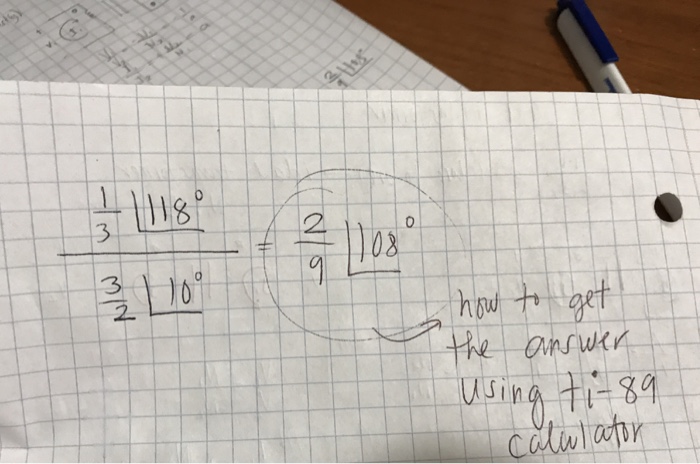 1/3 ∠118° / 3/2 ∠10° = 2/9 ∠108°
how to get
the answer
using ti-89
calculator